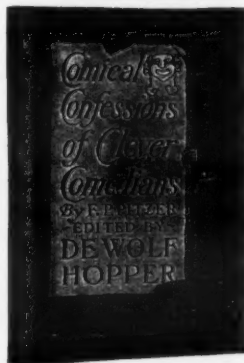 Comical
Confessions
of Clever
Comedians
By F. P. PITZER
-EDITED BY-
DE WOLF
HOPPER